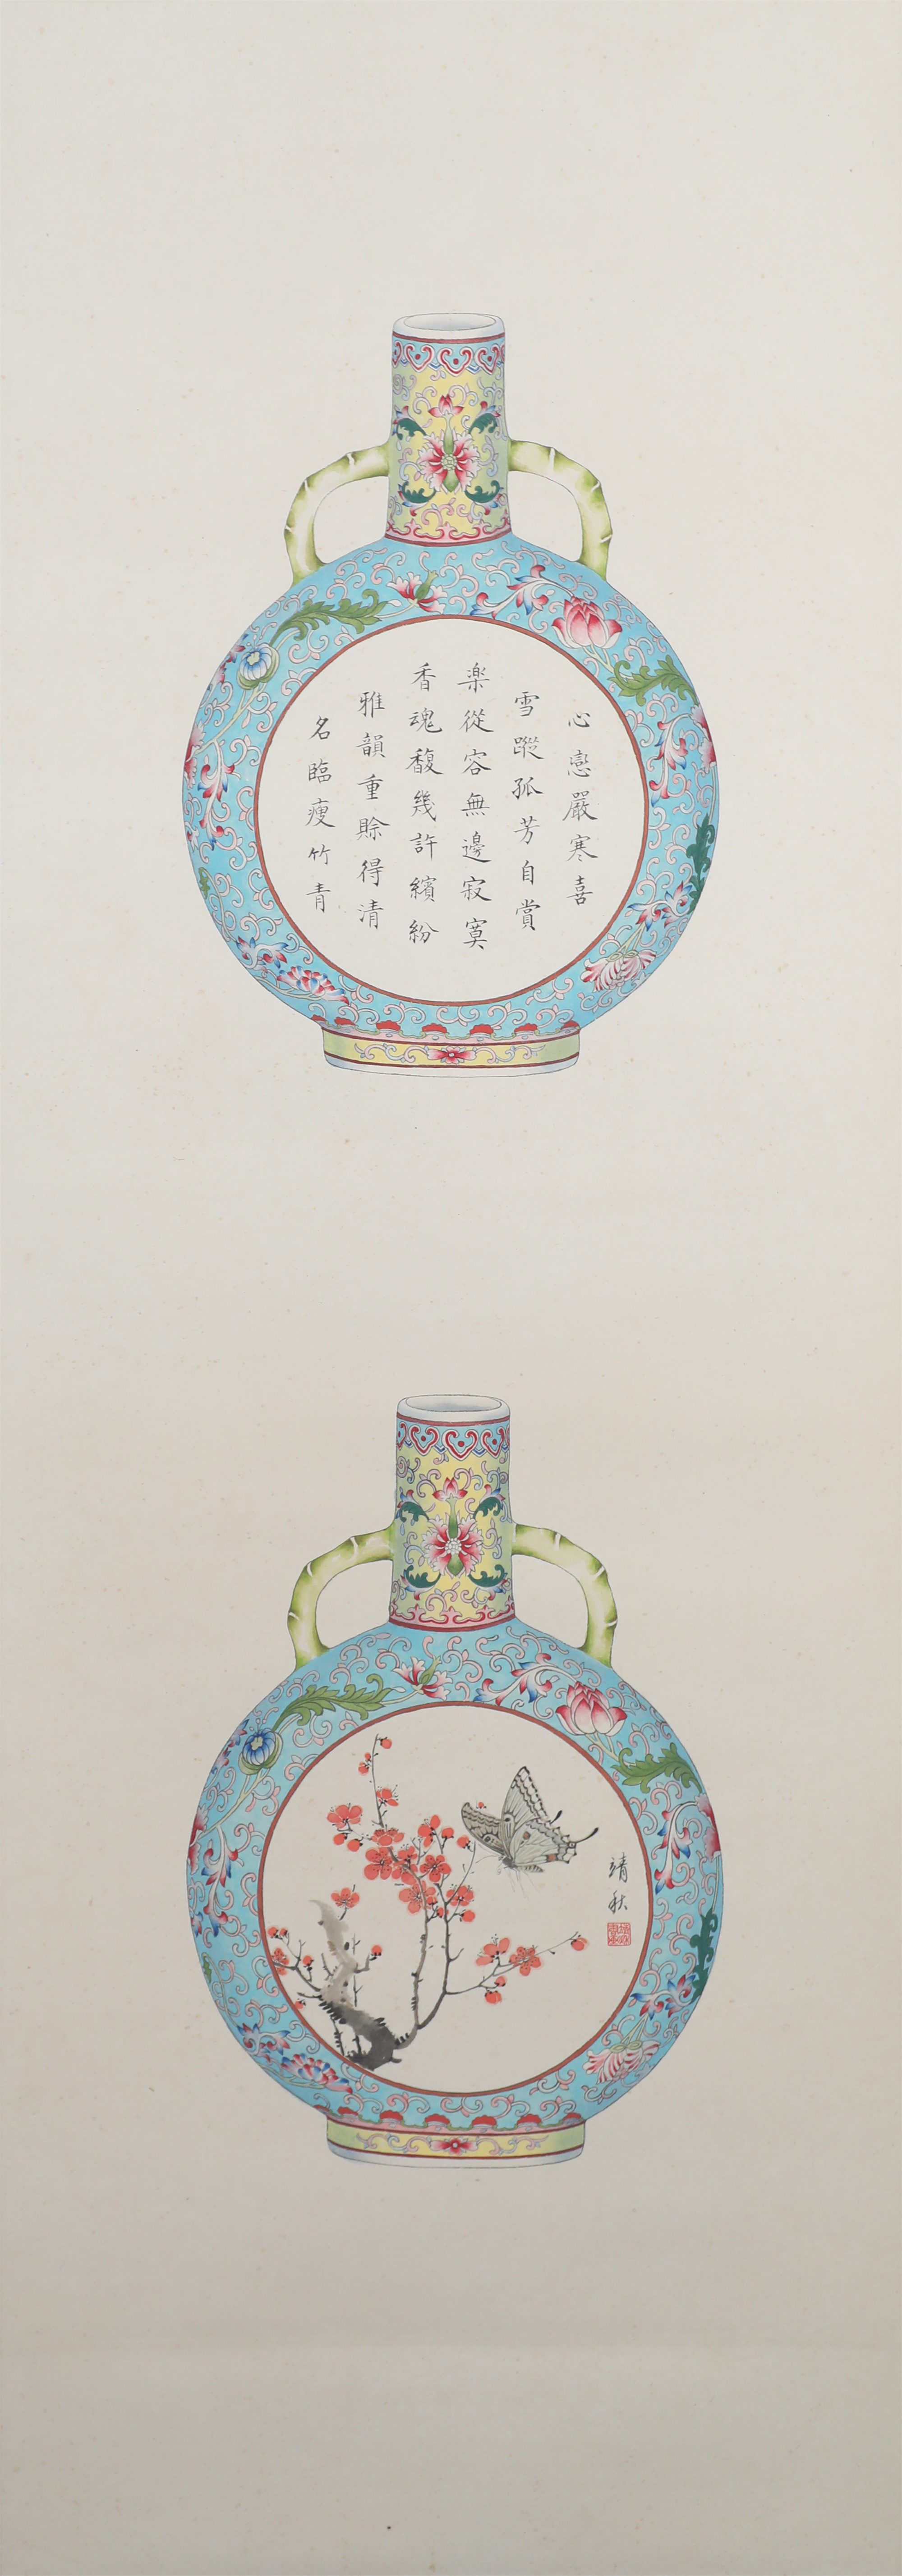 心戀嚴寒喜
雪蹤孤芳自賞
楽從容無邊寂寞
香魂馥幾許繽紛
雅韻重賒得清
名臨瘦竹青
靖秋